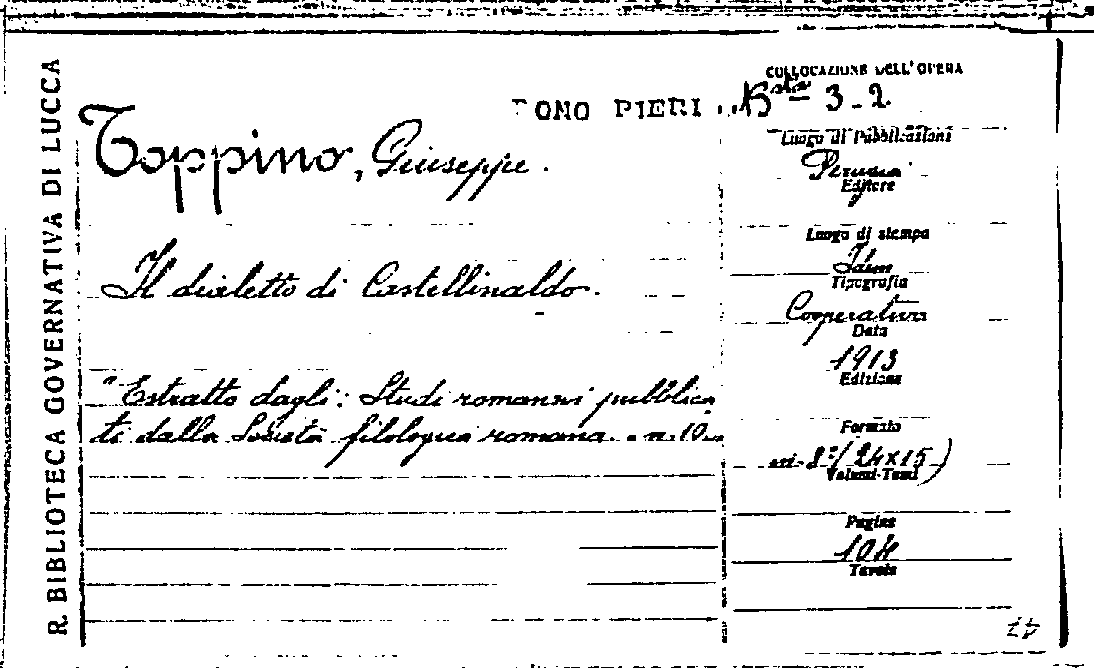 R. BIBLIOTECA GOVERNATIVA DI LUCCA
DONO PIERI
COLLOCAZIONE DELL'OPERA
Bta - 3-2
Toppino, Giuseppe.
Il dialetto di Castellinaldo.
"Estratto dagli: Studi romanzi pubblica
ti dalla Società filologica romana. n. 10
Luogo di Pubblicazioni
Perugia
Editore
Luogo di stampa
Idem
Tipografia
Cooperativa
Data
1913
Edizione
Formato
in-8º (24x15)
Volumi-Tomi
Pagine
104
Tavole